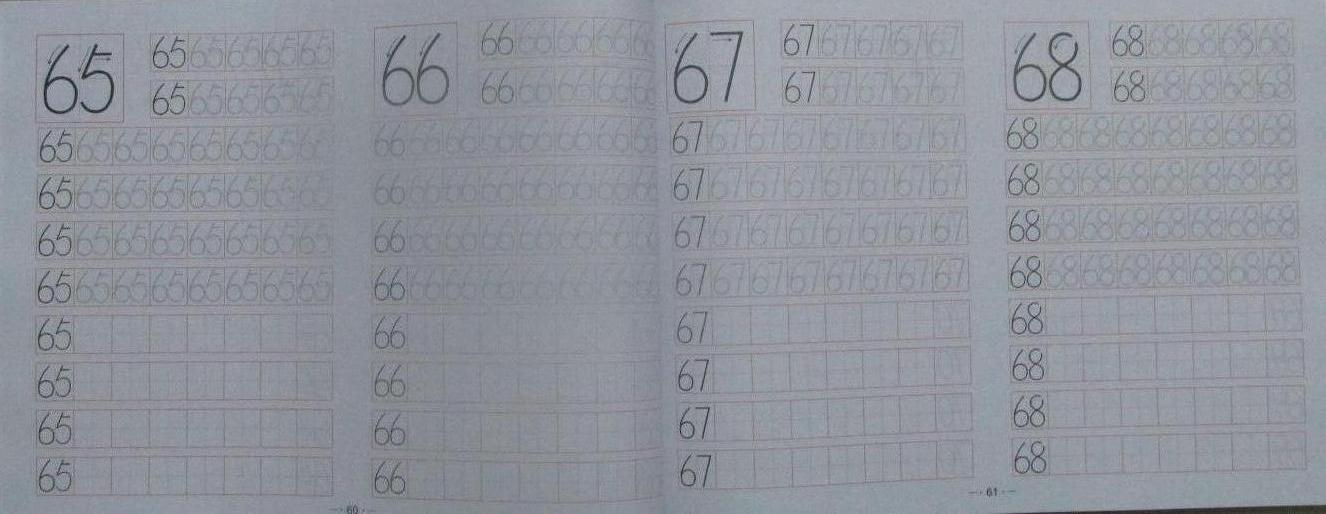 65
65 65 65 65 65
65 65 65 65 65
65 65 65 65 65 65 65 65
65 65 65 65 65 65 65 65
65 65 65 65 65 65 65 65
65 65 65 65 65 65 65 65
65
65
65
65
66
66 66 66 66 66
66 66 66 66 66
66 66 66 66 66 66 66 66
66 66 66 66 66 66 66 66
66 66 66 66 66 66 66 66
66 66 66 66 66 66 66 66
66
66
66
66
60
67
67 67 67 67 67
67 67 67 67 67
67 67 67 67 67 67 67 67
67 67 67 67 67 67 67 67
67 67 67 67 67 67 67 67
67 67 67 67 67 67 67 67
67
67
67
67
68
68 68 68 68 68
68 68 68 68 68
68 68 68 68 68 68 68 68
68 68 68 68 68 68 68 68
68 68 68 68 68 68 68 68
68 68 68 68 68 68 68 68
68
68
68
68
61